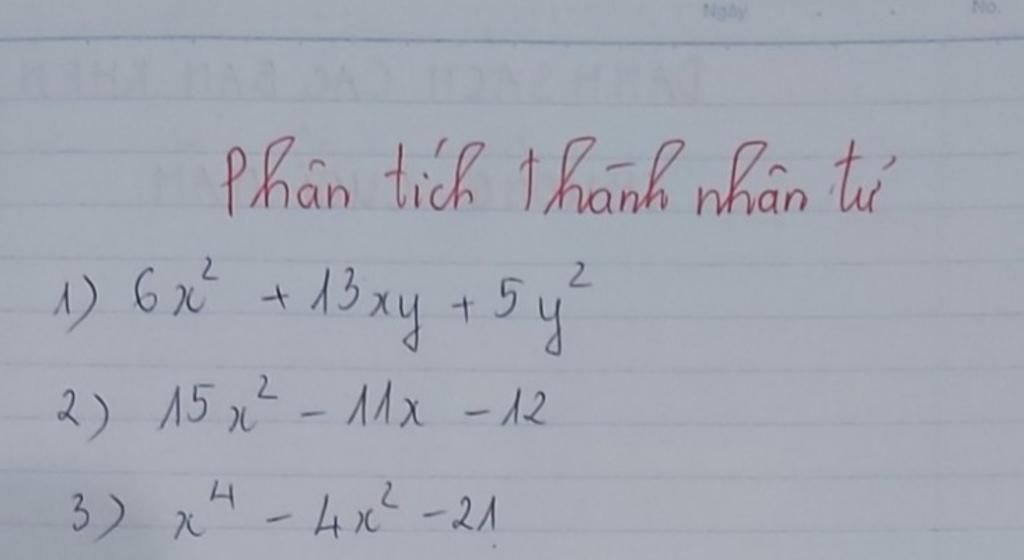 Ngày
No.
Phân tích thành nhân tử
1) 6x² + 13xy + 5y²
2) 15x² - 11x - 12
3) x⁴ - 4x² - 21